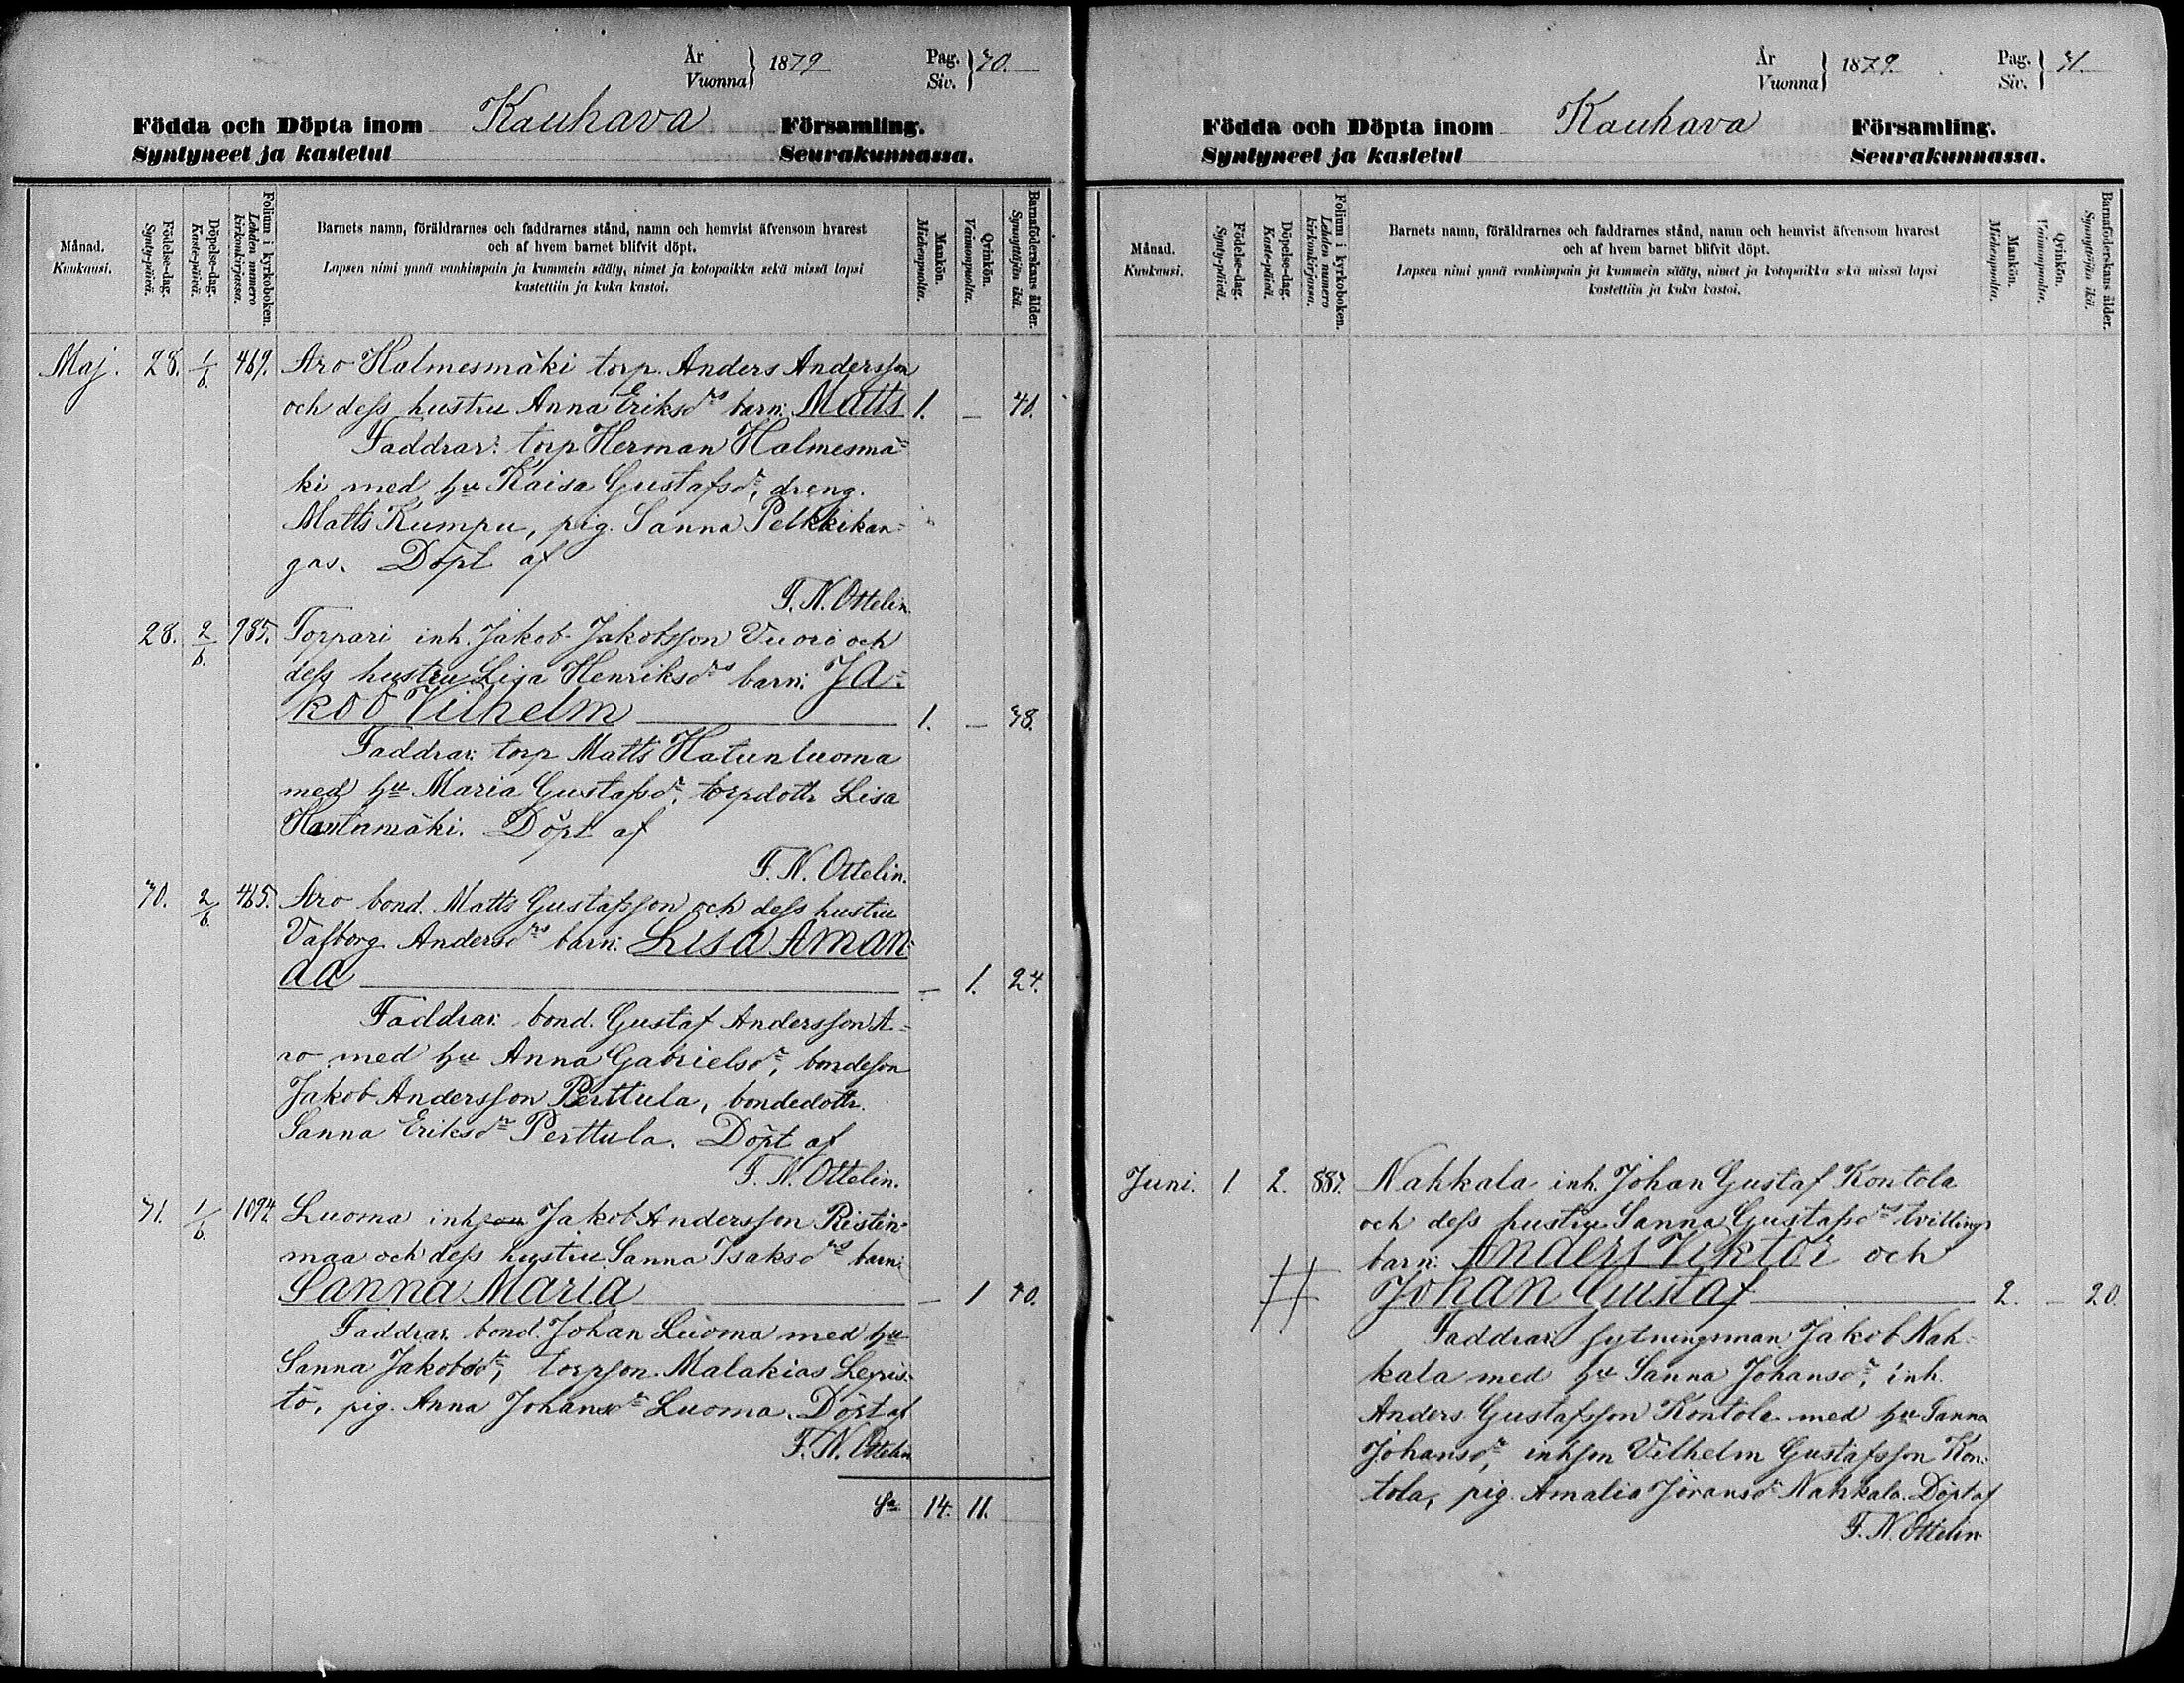 År
Vuonna
1879
Pag.
Siv.
30.
Födda och Döpta inom Kauhava Församling.
Syntyneet ja kastetut Seurakunnassa.
Månad.
Kuukausi.
Födelse-dag.
Synty-päivä.
Döpelse-dag.
Kaste-päivä.
Folium i kyrkoboken.
Lehden numero
kirkonkirjassa.
Barnets namn, föräldrarnes och faddrarnes stånd, namn och hemvist äfvensom hvarest
och af hvem barnet blifvit döpt.
Lapsen nimi ynnä vanhimpain ja kummein sääty, nimet ja kotopaikka sekä missä lapsi
kastettiin ja kuka kastoi.
Mankön.
Miehenpuolta.
Qvinkön.
Vaimonpuolta.
Barnaföderskans ålder.
Synnyttäjän ikä.
Maj. 28. 1/6. 469. Aro Halmesmäki torp. Anders Andersson
och dess hustru Anna Eriksdrs barn: Matts 1. — 40.
Faddrar: torp Herman Halmesmä=
ki med hu Kaisa Gustafsdr, dreng.
Matts Kumpu, pig. Sanna Pelkkikan=
gas. Döpt af
F. N. Ottelin.
28. 2/6. 985. Torpari inh. Jakob Jakobsson Vuori och
dess hustru Lisa Henriksdrs barn: Ja=
kob Vilhelm 1. — 38.
Faddrar: torp Matts Hatunluoma
med hu Maria Gustafsdr, torpdottr Lisa
Hautamäki. Döpt af
F. N. Ottelin.
30. 2/6. 465. Aro bond. Matts Gustafsson och dess hustru
Valborg Andersdrs barn: Lisa Aman=
da — 1. 24.
Faddrar: bond. Gustaf Andersson A=
ro med hu Anna Gabrielsdr, bondeson
Jakob Andersson Perttula, bondedottr.
Sanna Eriksdr Perttula. Döpt af
F. N. Ottelin.
31. 1/6. 1094. Luoma inh Jakob Andersson Ristin=
maa och dess hustru Sanna Isaksdrs barn:
Sanna Maria — 1 40.
Faddrar: bond. Johan Luoma med hu
Sanna Jakobsdr, torpson Malakias Lepis=
tö, pig. Anna Johansdr Luoma. Döpt af
F. N. Ottelin
Sa 14. 11.
År
Vuonna
1879.
Pag.
Siv.
31.
Födda och Döpta inom Kauhava Församling.
Syntyneet ja kastetut Seurakunnassa.
Månad.
Kuukausi.
Födelse-dag.
Synty-päivä.
Döpelse-dag.
Kaste-päivä.
Folium i kyrkoboken.
Lehden numero
kirkonkirjassa.
Barnets namn, föräldrarnes och faddrarnes stånd, namn och hemvist äfvensom hvarest
och af hvem barnet blifvit döpt.
Lapsen nimi ynnä vanhimpain ja kummein sääty, nimet ja kotopaikka sekä missä lapsi
kastettiin ja kuka kastoi.
Mankön.
Miehenpuolta.
Qvinkön.
Vaimonpuolta.
Barnaföderskans ålder.
Synnyttäjän ikä.
Juni. 1. 2. 887. Nahkala inh. Johan Gustaf Kontola
och dess hustru Sanna Gustafsdrs tvillings
barn: Anders Viktor och
Johan Gustaf 2. — 20.
Faddrar: sytningsman Jakob Nah=
kala med hu Sanna Johansdr, inh.
Anders Gustafsson Kontola med hu Sanna
Johansdr, inhson Vilhelm Gustafsson Kon=
tola, pig. Amalia Jöransdr Nahkala. Döpt af
F. N. Ottelin.